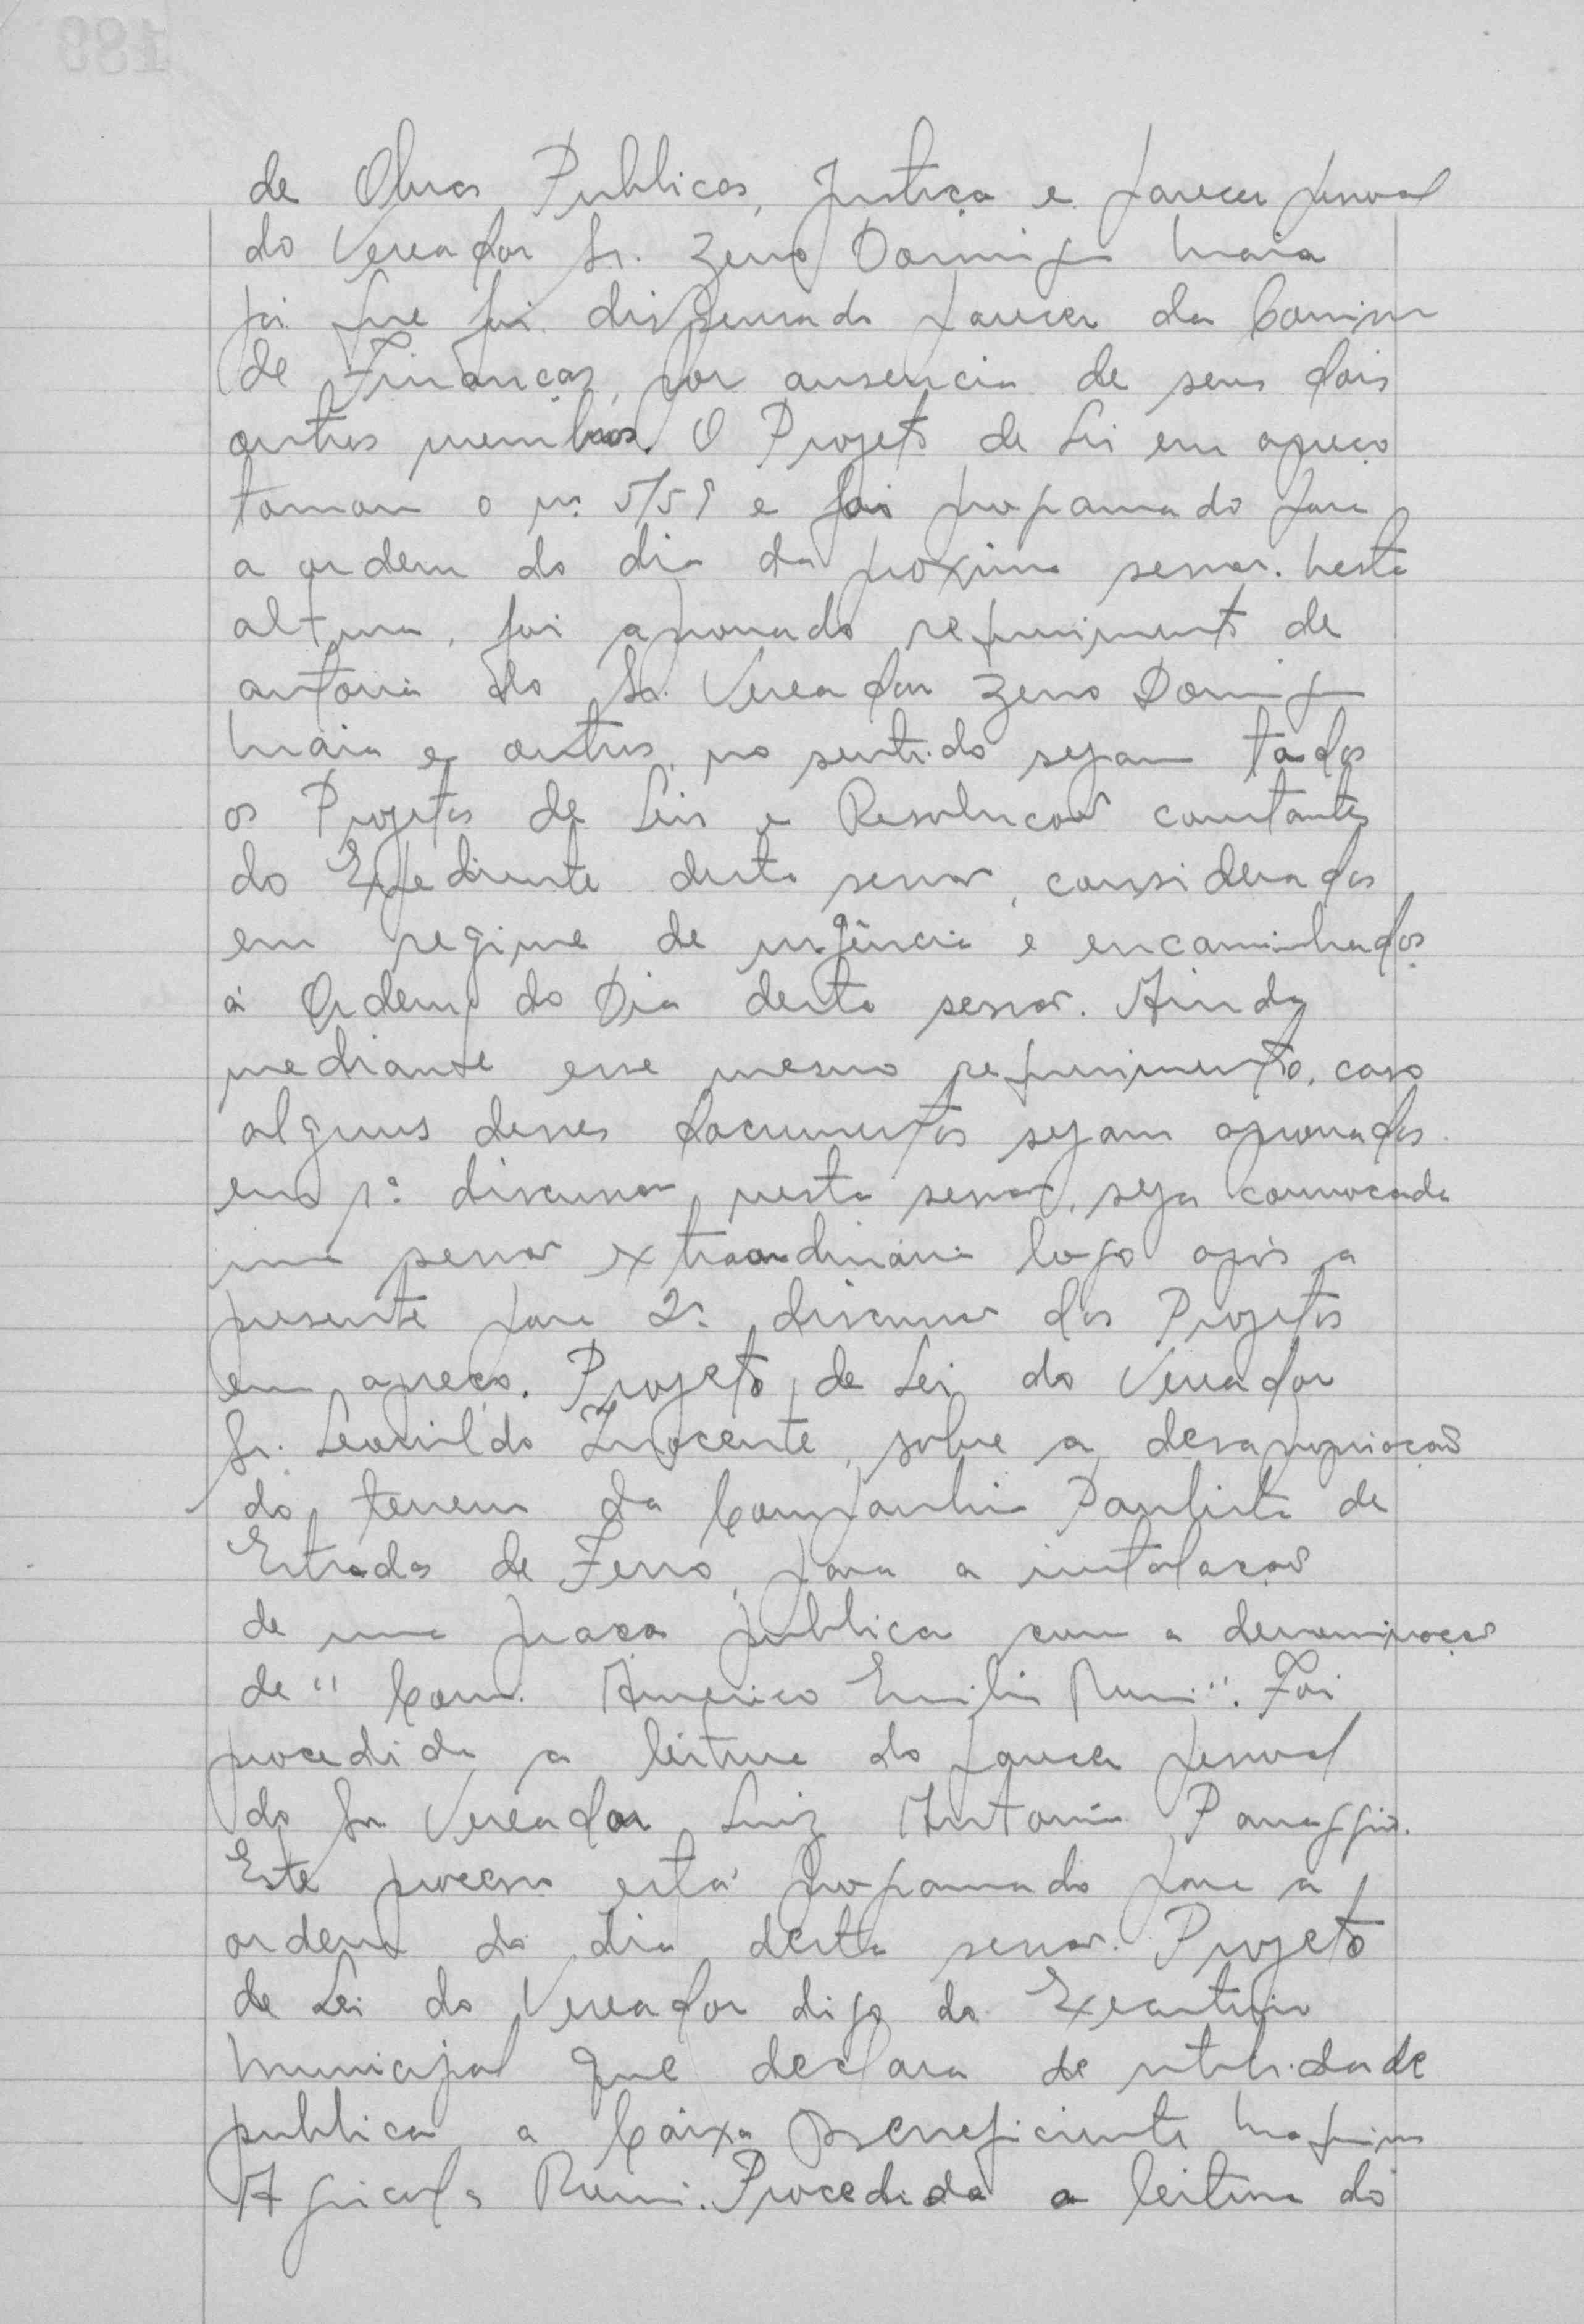 de Obras Publicas, Justiça e parecer pessoal
do Vereador Sr. Zeno Domingos Maia
já que foi dispensado parecer da Comissão
de Finanças, por ausencia de seus dois
outros membros. O Projeto de Lei em apreço
tomou o nº 5/59 e foi programado para
a ordem do dia da proxima sessão. Nesta
altura, foi aprovado requerimento de
autoria do Sr. Vereador Zeno Domingos
Maia e outros, no sentido sejam todos
os Projetos de Leis e Resoluções constantes
do Expediente desta sessão, considerados
em regime de urgência e encaminhados
á Ordem do Dia desta sessão. Ainda
mediante esse mesmo requerimento, caso
alguns desses documentos sejam aprovados
em 1ª discussão nesta sessão, seja convocada
uma sessão extraordinária logo após a
presente para 2ª discussão dos Projetos
em apreço. Projeto de Lei do Vereador
Sr. Leonildo Inocente, sobre a desapropriação
do terreno da Companhia Paulista de
Estradas de Ferro, para a instalação
de uma praça publica com a denominação
de "Com. Americo Emilio Romi". Foi
procedida a leitura do parecer pessoal
do Sr Vereador Luiz Antonio Panaggio.
Este processo está programado para a
ordem do dia desta sessão. Projeto
de Lei do Vereador digo do Executivo
Municipal que declara de utilidade
publica a Caixa Beneficiente Maquinas
Agricolas Romi. Procedida a leitura do